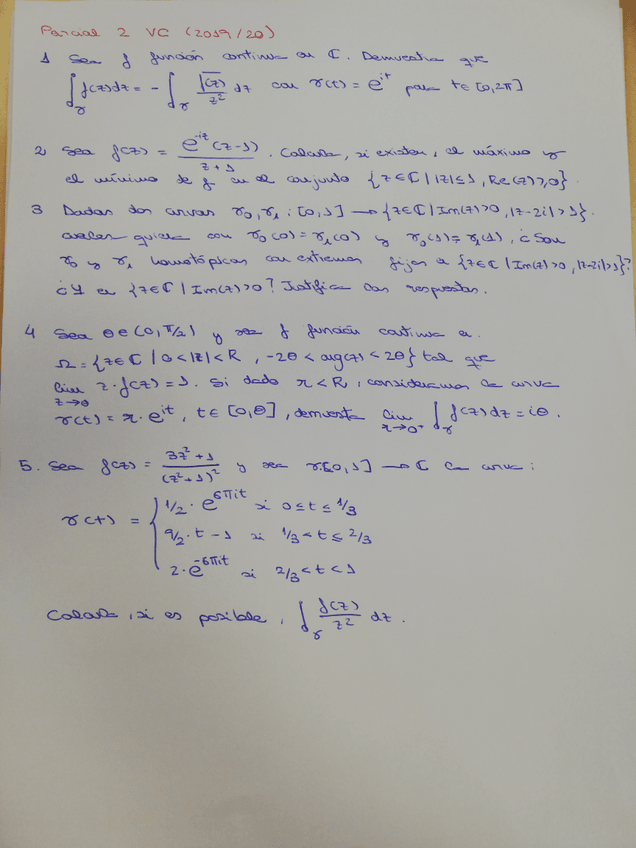 Parcial 2 VC (2019/20)
1 Sea f función continua en ℂ. Demuestra que
∫_γ f(z)dz = - ∫_γ \overline{f(z)}/z² dz con γ(t) = e^{it} para t ∈ [0,2π]
2 Sea f(z) = e^{-iz}(z-1)/(z+1). Calcula, si existen, el máximo y
el mínimo de f en el conjunto {z∈ℂ | |z|≤1, Re(z)≥0}.
3 Dadas dos curvas γ₀, γ₁ : [0,1] → {z∈ℂ | Im(z)>0, |z-2i|>1}.
cualesquiera con γ₀(0) = γ₁(0) y γ₀(1) = γ₁(1), ¿Son
γ₀ y γ₁ homotópicas con extremos fijos en {z∈ℂ | Im(z)>0, |z-2i|>1}?
¿Y en {z∈ℂ | Im(z)>0? Justifica las respuestas.
4 Sea θ∈(0,π/2) y sea f función continua en
Ω = {z∈ℂ | 0<|z|<R, -2θ < arg(z) < 2θ} tal que
lim_{z→0} z·f(z) = 1. Si dado r<R, consideramos la curva
γ(t) = r·e^{it}, t∈[0,θ], demuestra lim_{r→0⁺} ∫_γ f(z)dz = iθ.
5. Sea f(z) = (3z²+1)/(z²+1)² y sea γ:[0,1] → ℂ la curva:
γ(t) = { 1/2·e^{6πit} si 0≤t≤1/3
9/2·t - 1 si 1/3<t≤2/3
2·e^{-6πit} si 2/3<t<1
Calcula, si es posible, ∫_γ f(z)/z² dz.